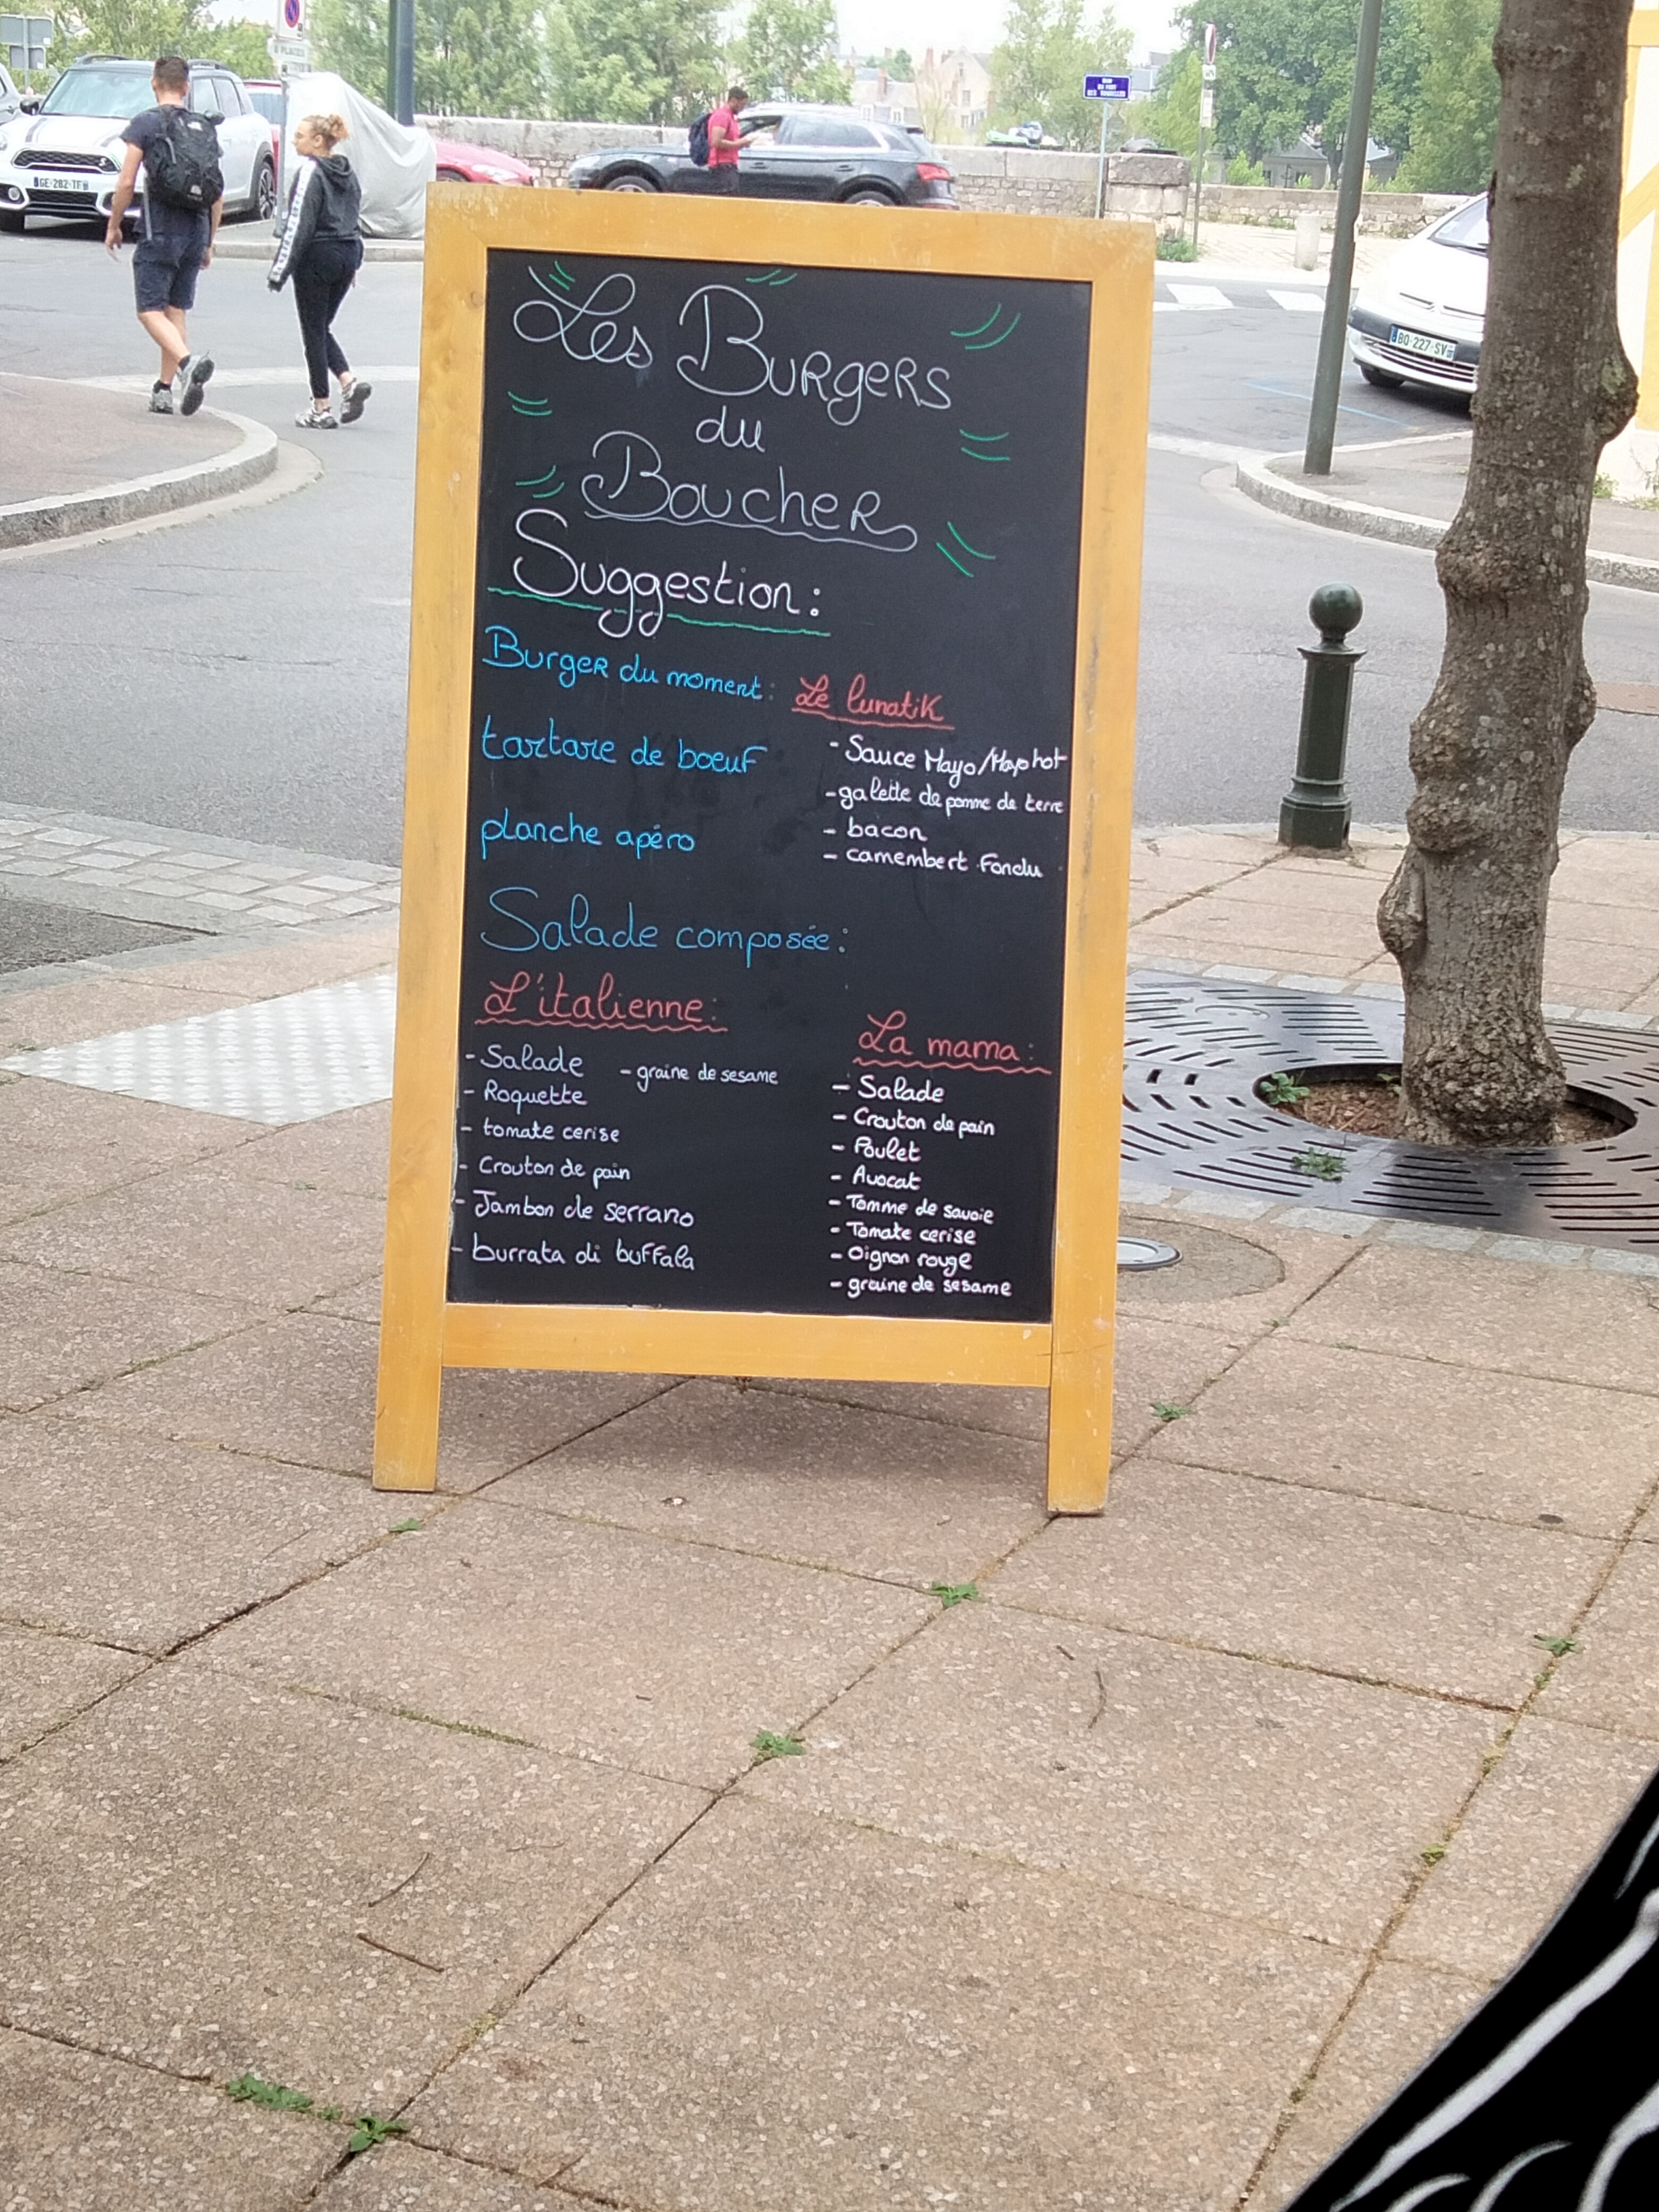 Les Burgers
du
Boucher
Suggestion :
Burger du moment : Le lunatik
- Sauce Mayo/Mayo hot
- galette de pomme de terre
- bacon
- camembert fondu
tartare de boeuf
planche apéro
Salade composée :
L'italienne :
- Salade
- graine de sesame
- Roquette
- tomate cerise
- Crouton de pain
- Jambon de serrano
- burrata di buffala
La mama :
- Salade
- Crouton de pain
- Poulet
- Avocat
- Tomme de savoie
- Tomate cerise
- Oignon rouge
- graine de sesame
GE-282-TF
BO-227-SV